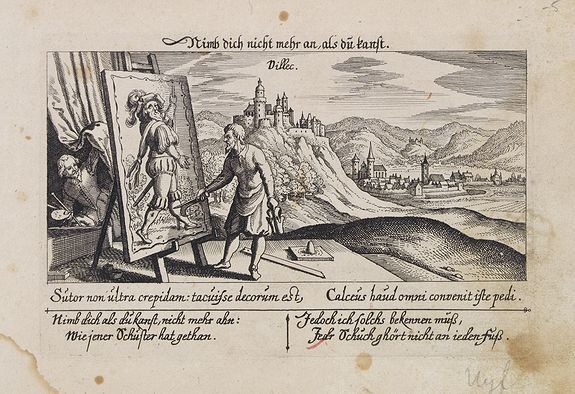 Nimb dich nicht mehr an, als du kanst.
Villec.
Sutor non ultra crepidam: tacuisse decorum est,
Calceus haud omni convenit iste pedi.
Nimb dich als du kanst, nicht mehr ahn:
Wie jener Schuster hat gethan.
Jedoch ich solchs bekennen müß,
Jedr Schuch ghört nicht an ieden Fuß.